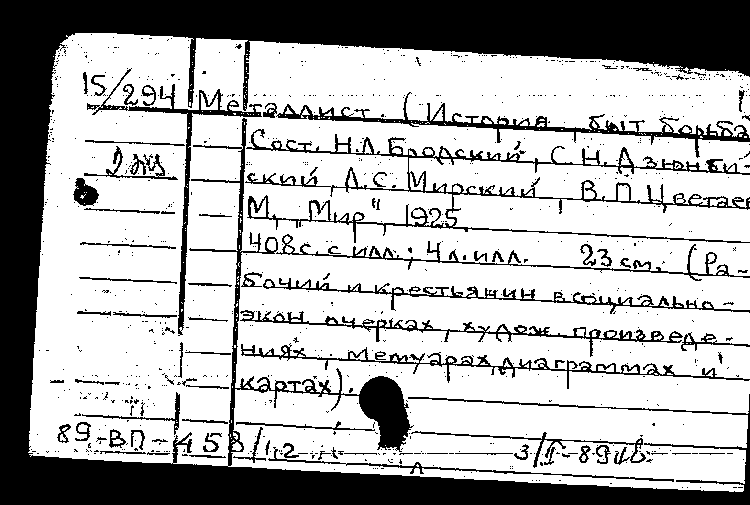 15/294 Металлист. (История, быт, борьба
Сост. Н.Л. Бродский, С.Н. Дзюнби-
2 экз
ский, Л.С. Мирский, В.П. Цветаев
М, "Мир", 1925.
408 с. с илл.; 4 л. илл. 23 см. (Ра-
бочий и крестьянин в социально-
экон очерках, худож произведе-
ниях, мемуарах, диаграммах и
картах).
89-ВП-458/1,2